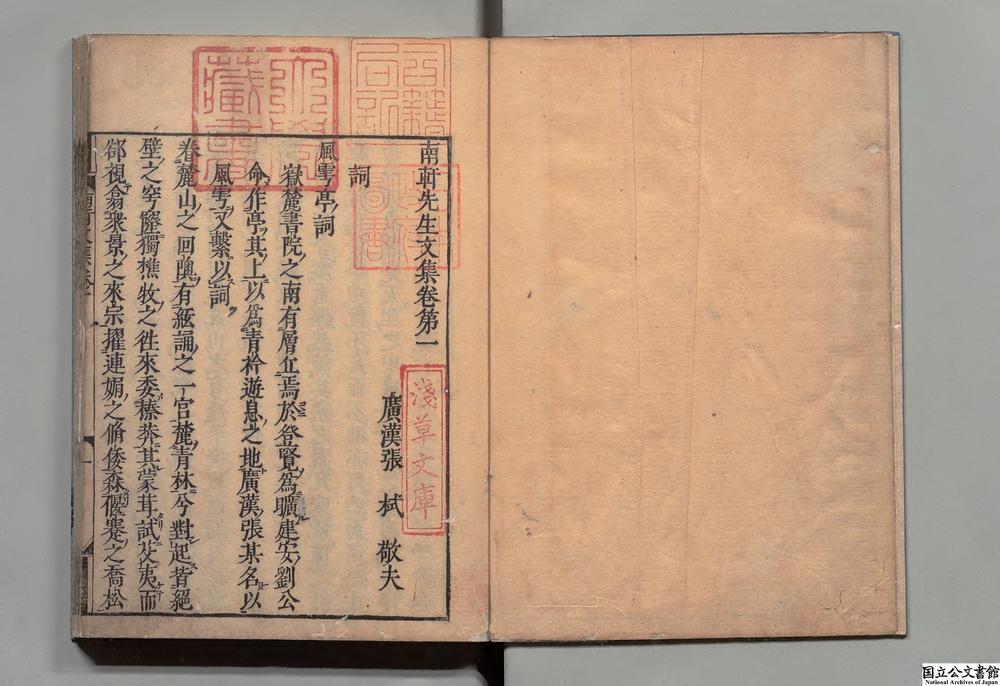 南軒先生文集卷第一
廣漢張 栻 敬夫
詞
風雩亭詞
嶽麓書院之南有層丘焉於登覽爲曠建安劉公
命作亭其上以爲青衿遊息之地廣漢張某名以
風雩又繫以詞
眷麓山之回隩有絃誦之一宮麓青林兮對起背絕
壁之穹窿獨樵牧之徃來委榛莽其蒙茸試芟夷而
郤視翕衆景之來宗擢連娟之脩篠森偃蹇之喬松
淺草文庫
藏書
国立公文書館
National Archives of Japan